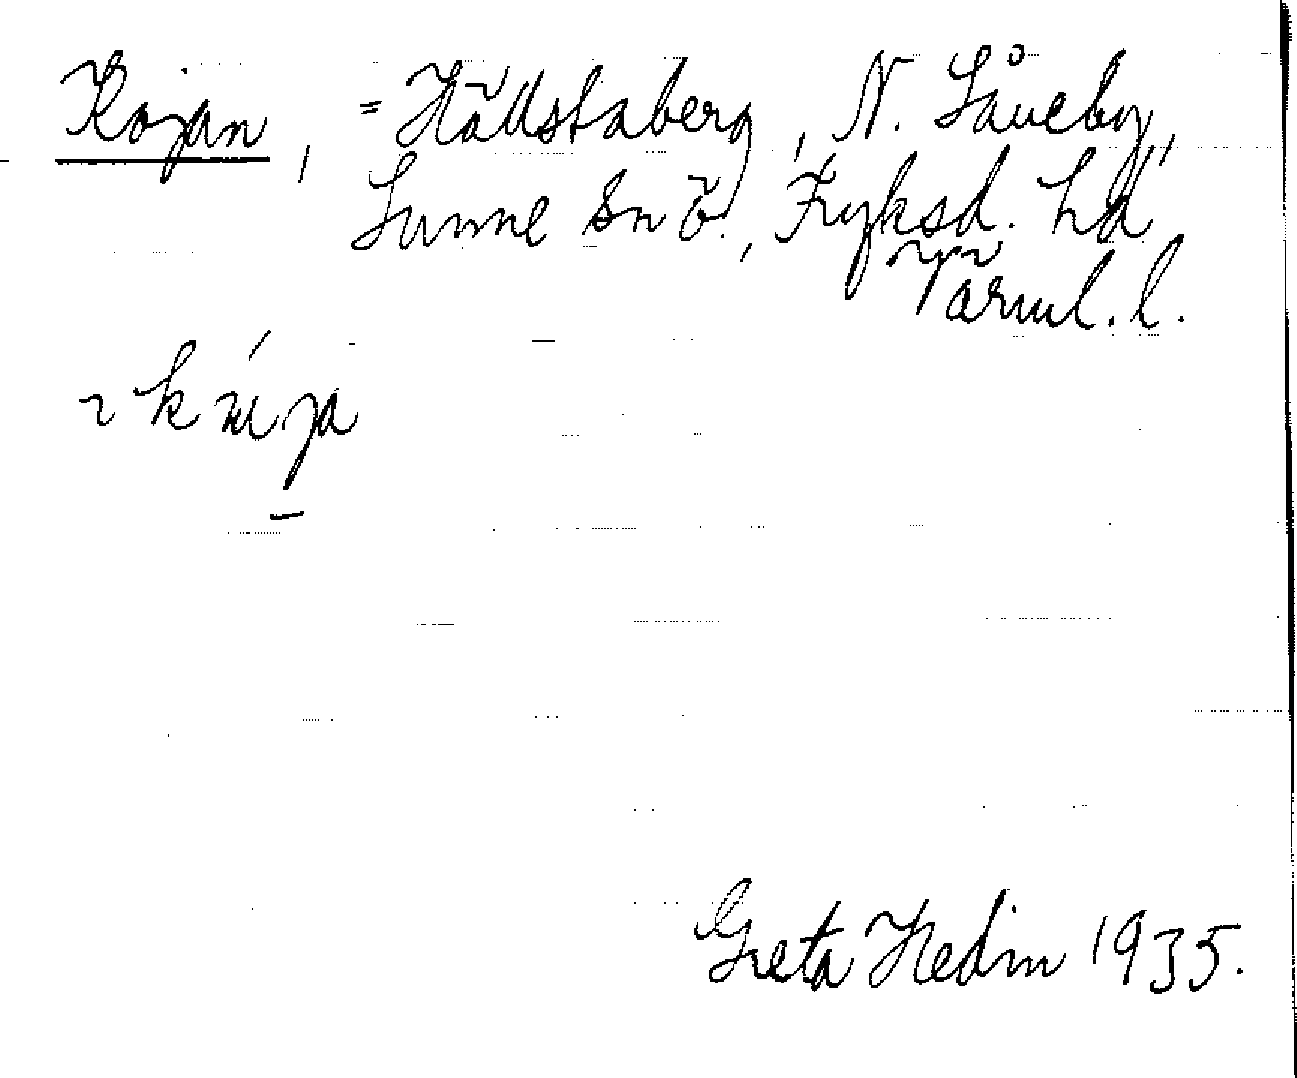 Kojan, = Hällstaberg, N. Låneby,
Sunne sn ö., Fryksd. hd
Värml. l.
Greta Hedin 1935.